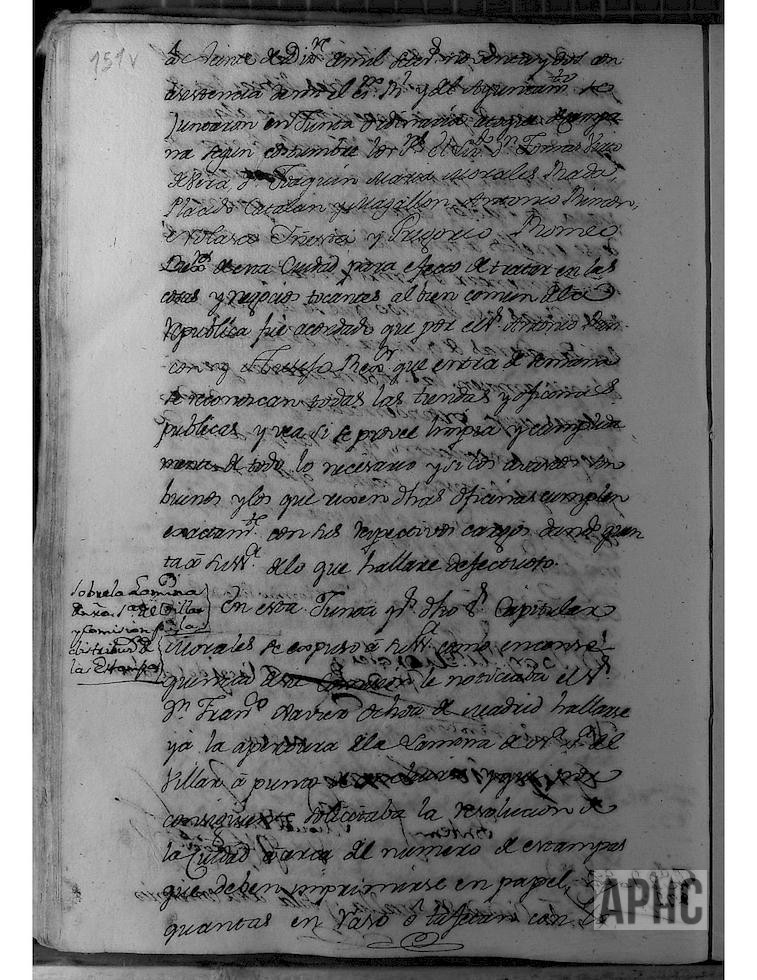 151v
de veinte de Di.re de mil setez.s noventa y dos con
asistencia de mi el es.no R.l y del Ayuntam.to se
juntaron en Junta ordinaria a toque de campa
na segun costumbre los S.res D.n Tomas
D.n Joaquin Maria Morales Rada,
Placido Catalan y Magallon, Antonio Rincon,
Nolasco y Gregorio Romeo
de esta Ciudad para efecto de tratar en las
cosas y negocios tocantes al bien comun de la
Republica fue acordado que por el S.r Antonio Rin
con y Reg.r que entra de semana
se reconozcan todas las tiendas y oficinas
publicas y vea si se provee limpia y cumplida
mente de todo lo necesario y si los son
buenos y los que rixen dhas oficinas cumplen
exactam.te con sus respectivos cargos dando quen
ta a su S.a de lo que hallare defectuoso.
Sobre la Lamina
de nra S.ra del Villar
y comision p.a la
distribuc.n de
las Estampas
En esta Junta p.r dho S.r Capitular
Morales se expuso a su S.a como en conse-
quencia de le noticiaba el S.r
D.n Fran.co Xavier Ochoa de Madrid hallarse
ya la apertura de la Lamina de N.ra S.ra del
Villar a punto de y que por
consiguiente solicitaba la resolucion de
la Ciudad acerca del numero de estampas
que deben imprimirse en papel,
quantas en raso o tafetan con
APHC